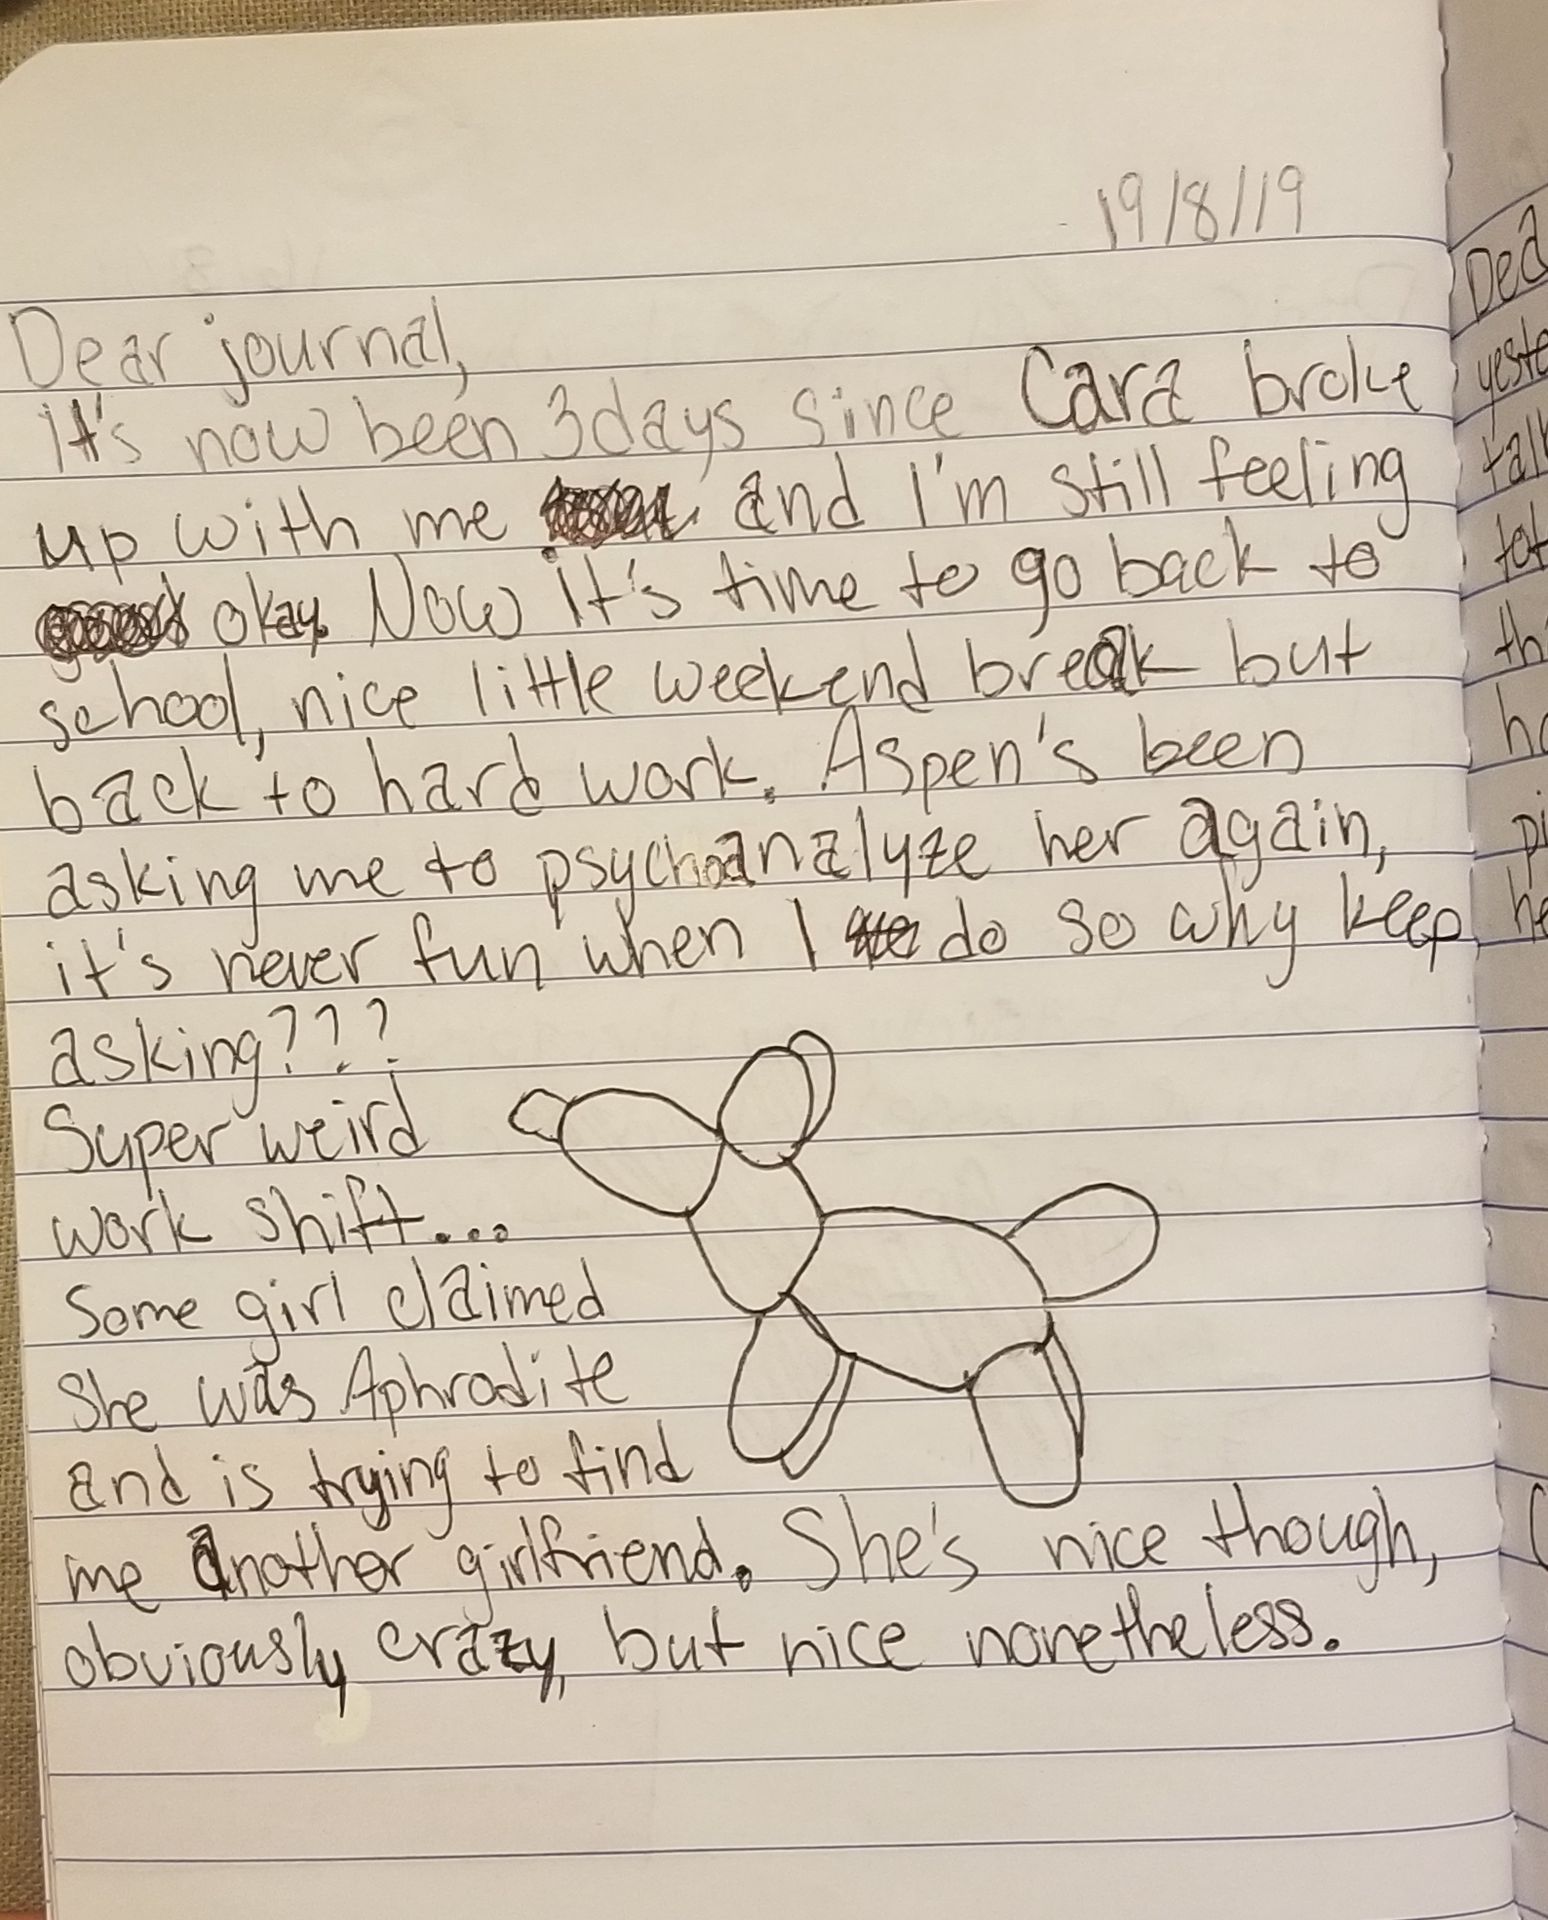 19/8/19
Dear journal,
It's now been 3days since Cara broke
up with me and I'm still feeling
okay. Now it's time to go back to
school, nice little weekend break but
back to hard work. Aspen's been
asking me to psychoanalyze her again,
it's never fun when I do so why keep
asking???
Super weird
work shift...
Some girl claimed
She was Aphrodite
and is trying to find
me another girlfriend. She's nice though,
obviously crazy, but nice nonetheless.
Dea
yeste
talk
tot
th
ha
pi
he